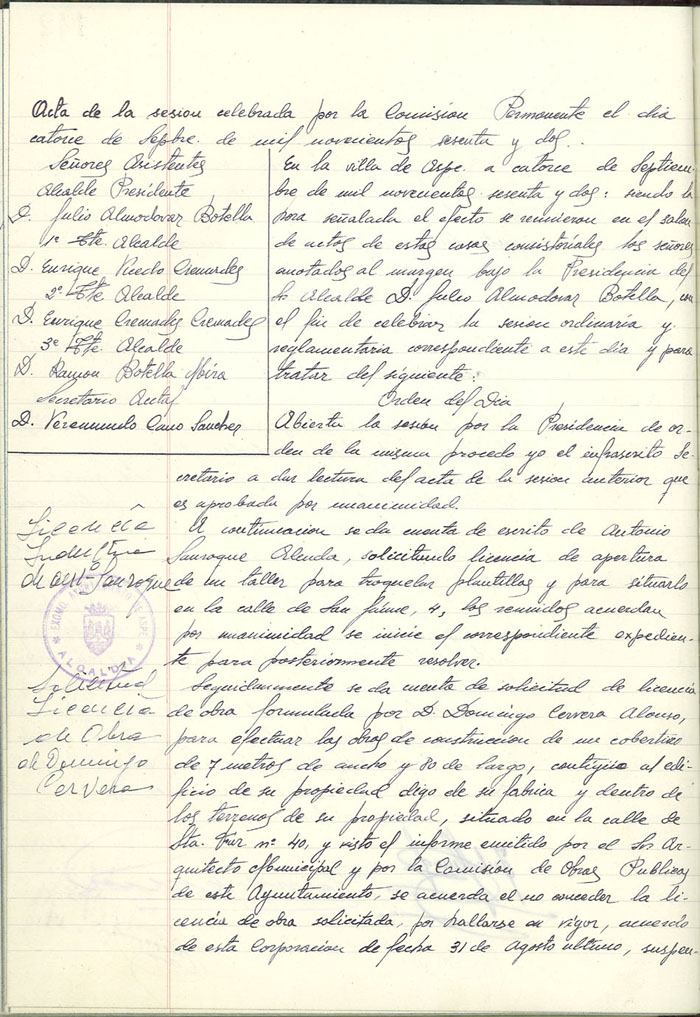 Acta de la sesion celebrada por la Comisión Permanente el dia
catorce de Sepbre. de mil novecientos sesenta y dos.
Señores Asistentes
Alcalde Presidente
D. Julio Almodovar Botella
1º Tte. Alcalde
D. Enrique Cremades
2º Tte Alcalde
D. Enrique Cremades Cremades
3º Tte. Alcalde
D. Ramon Botella Mira
Secretario Actal
D. Veremundo Cano Sanchez
En la villa de Aspe a catorce de Septiem-
bre de mil novecientos sesenta y dos: siendo la
hora señalada el efecto se reunieron en el salon
de actos de estas casas consistoriales los señores
anotados al margen bajo la Presidencia del
Sr Alcalde D. Julio Almodovar Botella, con
el fin de celebrar la sesion ordinaria y
reglamentaria correspondiente a este dia y para
tratar del siguiente:
Orden del Dia
Abierta la sesion por la Presidencia de or-
den de la misma procedo yo el infrascrito Se-
cretario a dar lectura del acta de la sesion anterior que
es aprobada por unanimidad.
Licencia
Industria
de Antº Sanroque
A continuacion se da cuenta de escrito de Antonio
Sanroque, solicitando licencia de apertura
de un taller para troquelar plantillas y para situarlo
en la calle de San Jaime, 4, los reunidos acuerdan
por unanimidad se inicie el correspondiente expedien-
te para posteriormente resolver.
EXCMO. AYUNTAMIENTO DE ASPE
ALCALDIA
Solicitud
Licencia
de Obra
de Domingo
Cervera
Seguidamente se da cuenta de solicitud de licencia
de obra formulada por D. Domingo Cervera Alonso,
para efectuar las obras de construccion de un cobertizo
de 7 metros de ancho y 80 de largo, contiguo al edi-
ficio de su propiedad digo de su fabrica y dentro de
los terrenos de su propiedad, situado en la calle de
Sta. Faz nº 40, y visto el informe emitido por el Sr. Ar-
quitecto Municipal y por la Comisión de Obras Publicas
de este Ayuntamiento, se acuerda el no conceder la li-
cencia de obra solicitada, por hallarse en vigor, acuerdo
de esta Corporacion de fecha 31 de Agosto ultimo, suspen-